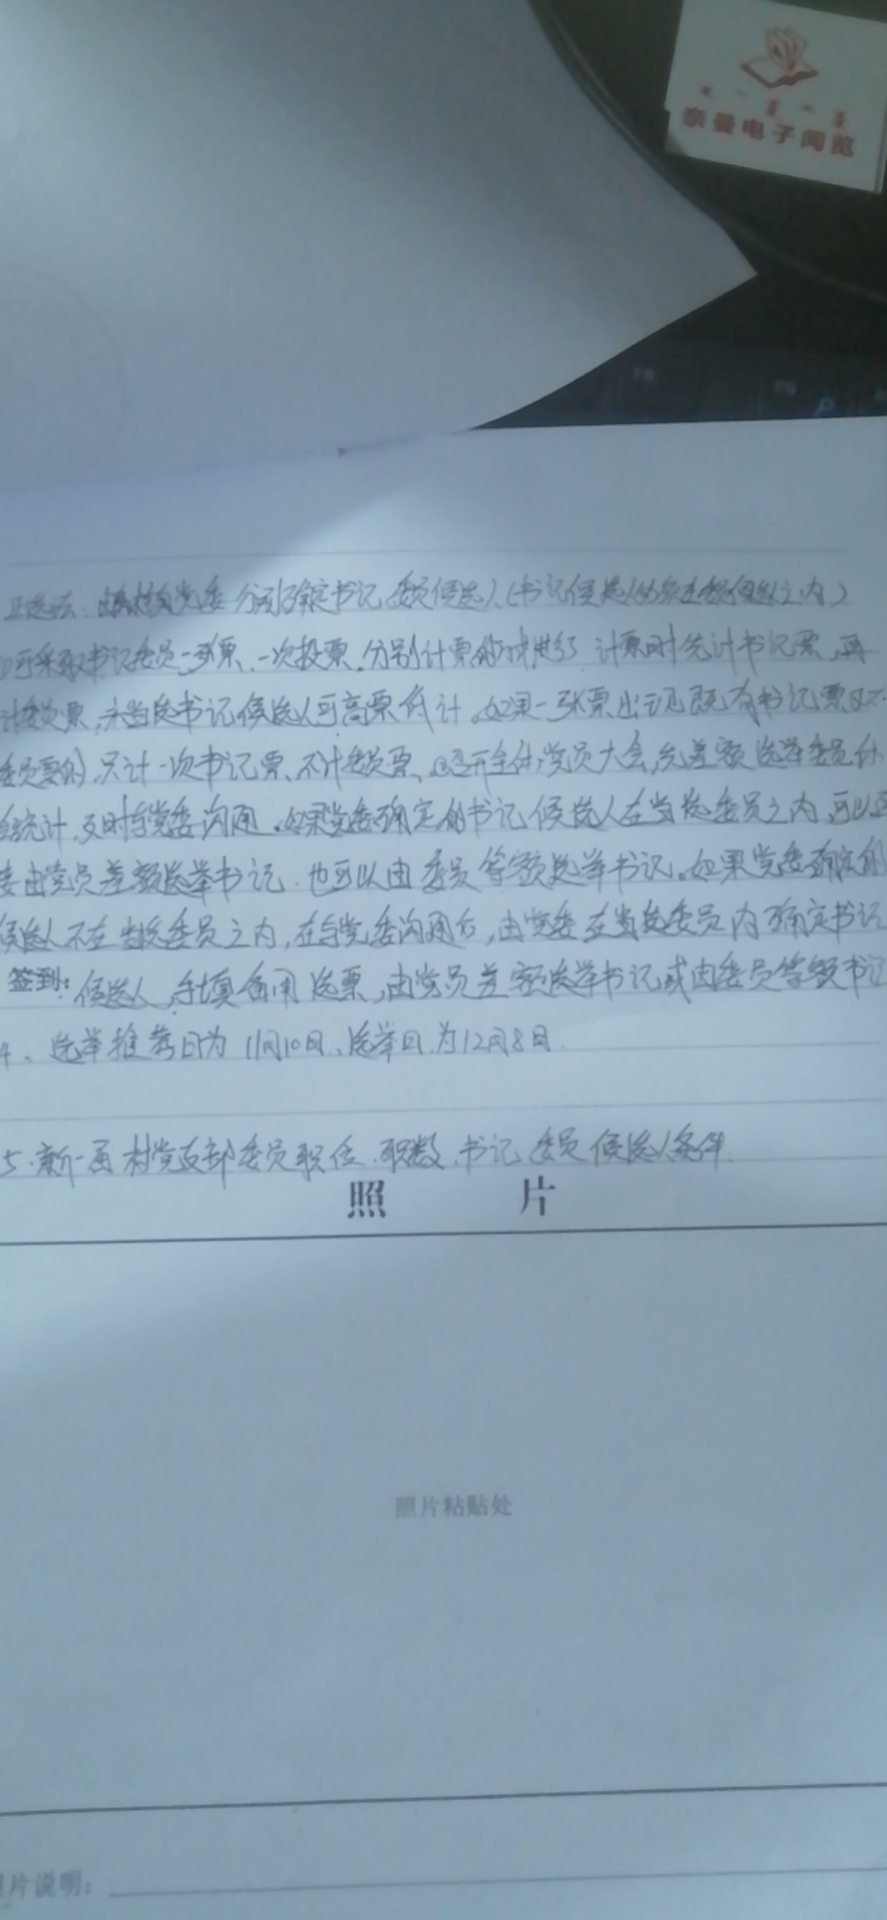 奈曼电子阅览
正选法：由苏木镇党委 分别确定书记、委员候选人（书记候选人必须在委员候选人之内）
可采取书记委员一张票、一次投票、分别计票的方式进行 计票时先计书记票，再
计委员票，未当选书记候选人可高票低计。如果一张票出现既有书记票又有
委员票的，只计一次书记票、不计委员票、②召开全体党员大会，先差额选举委员
统计，及时与党委沟通。如果党委确定的书记候选人在当选委员之内，可以
由党员差额选举书记，也可以由委员等额选举书记。如果党委确定的
候选人不在当选委员之内，在与党委沟通后，由党委在当选委员内确定书记
签到：候选人，手填备用选票，由党员差额选举书记或由委员等额书记
4、选举推荐日为11月10日、选举日为12月8日
5.新一届村党支部委员职位、职数、书记、委员候选人条件.
照 片
照片粘贴处
片说明：